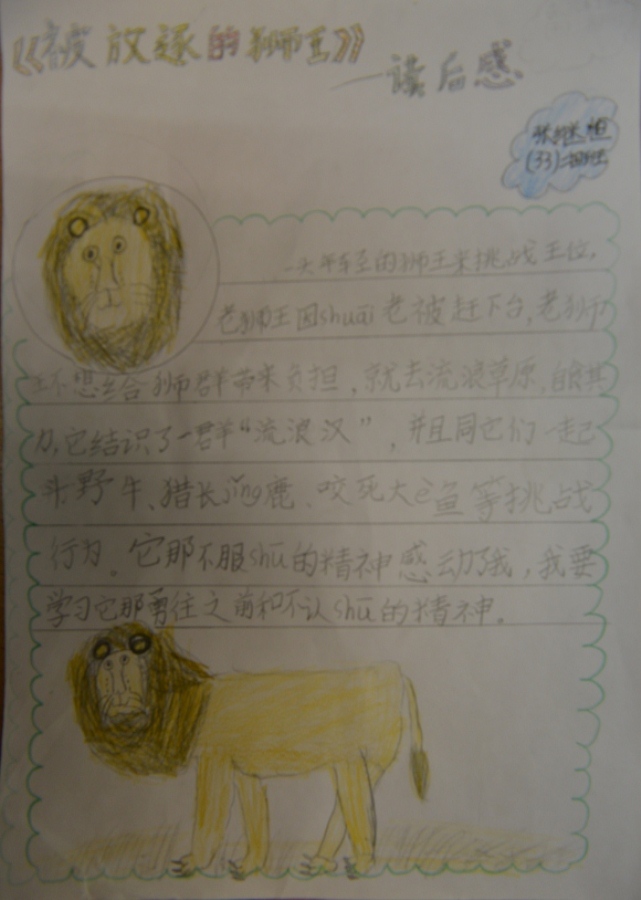 《被放逐的狮王》
一读后感
(33)
一头年轻的狮王来挑战王位，
老狮王因shuāi老被赶下台，老狮
王不想给狮群带来负担，就去流浪草原，自食其
力，它结识了一群“流浪汉”，并且同它们一起
斗野牛、猎长jǐng鹿、咬死大è鱼等挑战
行为。它那不服shū的精神感动了我，我要
学习它那勇往之前和不认shū的精神。